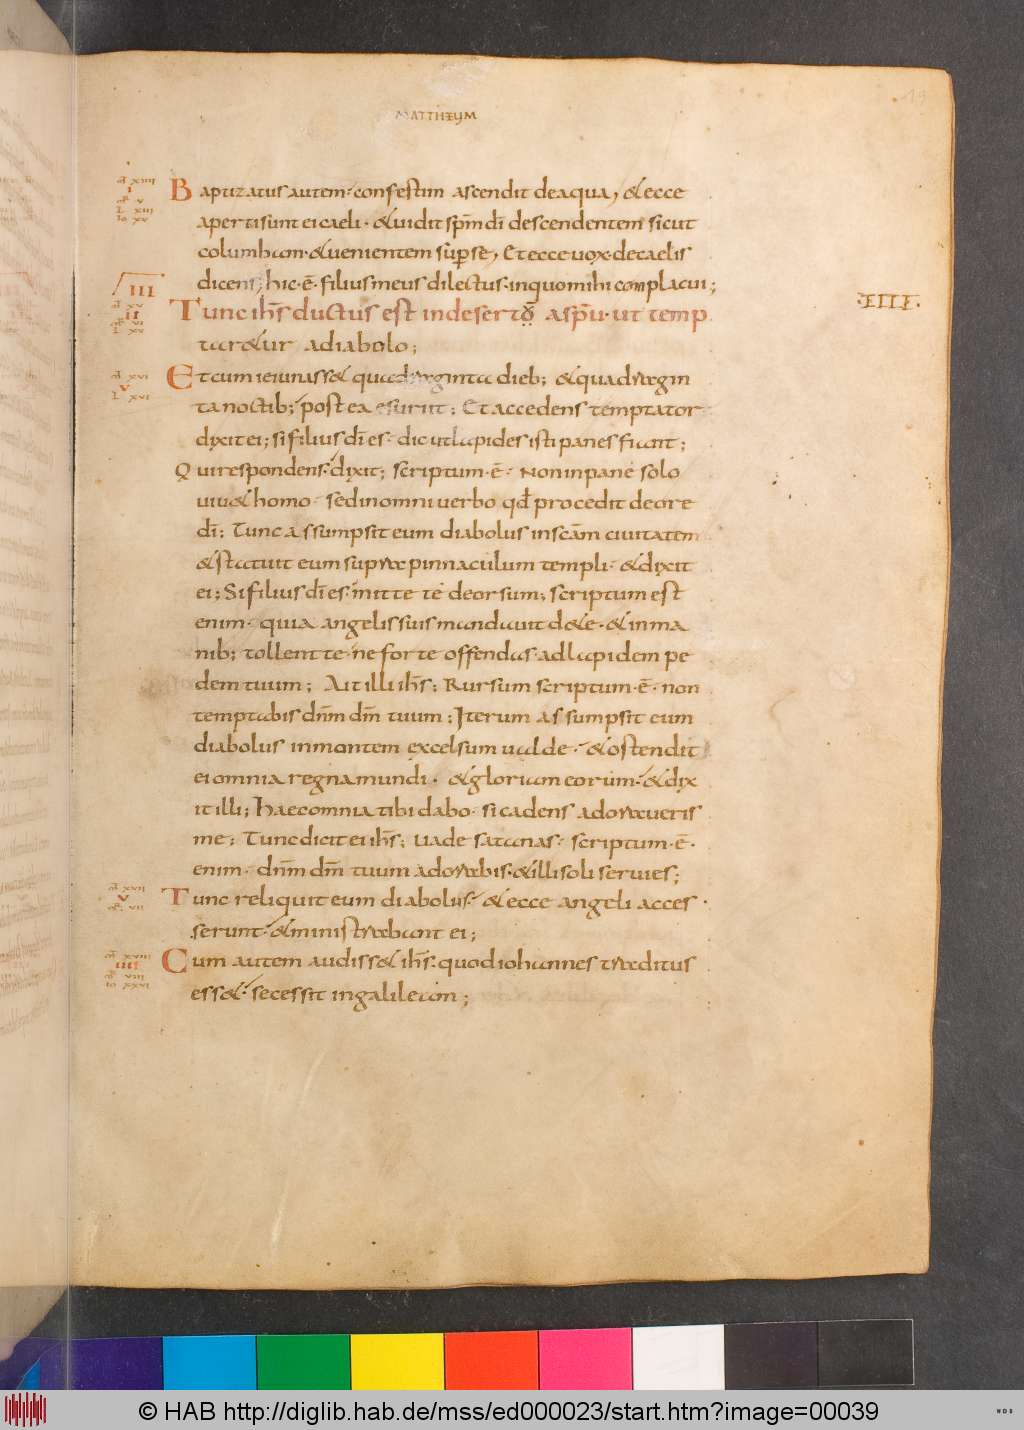 MATTHEUM
Baptizatus autem· confestim ascendit deaqua, &ecce
apertisunt ei caeli· &uidit sp̄m dī descendentem sicut
columbam· &uenientem sup̄ se, Et ecce uox· decaelis
dicens, hic· ē· filius meus dilectus· inquo mihi complacui;
III
IIII.
Tunc ih̄s ductus est indesertū asp̄u· ut temp
tar&ur adiabolo;
Et cum ieiunass& quadraginta dieb; &quadragin
ta noctib; postea esuriit; Et accedens temptator
dixit ei; si filius dī es· dic ut lapides isti panes fiant;
Qui respondens· dixit; scriptum· ē· Non in pane solo
uiu& homo· sed in omni uerbo qd̄ procedit de ore
dī; Tunc assumpsit eum diabolus in sc̄am ciuitatem
&statuit eum supra pinnaculum templi· &dixit
ei; Si filius dī es· mitte te deorsum; scriptum est
enim· quia angelis suis mandauit de te· &in ma
nib; tollent te· ne forte offendas· ad lapidem pe
dem tuum; Ait illi ih̄s; Rursum scriptum· ē· non
temptabis dn̄m dm̄ tuum; Iterum assumpsit eum
diabolus in montem excelsum ualde· &ostendit
ei omnia regna mundi· &gloriam eorum· &dix
it illi; Haec omnia tibi dabo· si cadens adoraueris
me; Tunc dicit ei ih̄s; Uade satanas· scriptum· ē·
enim· dn̄m dm̄ tuum adorabis· &illi soli seruies;
Tunc reliquit eum diabolus· &ecce angeli acces·
serunt· &ministrabant ei;
Cum autem audiss& ih̄s· quod iohannes traditus
ess&· secessit in galileam;
© HAB http://diglib.hab.de/mss/ed000023/start.htm?image=00039